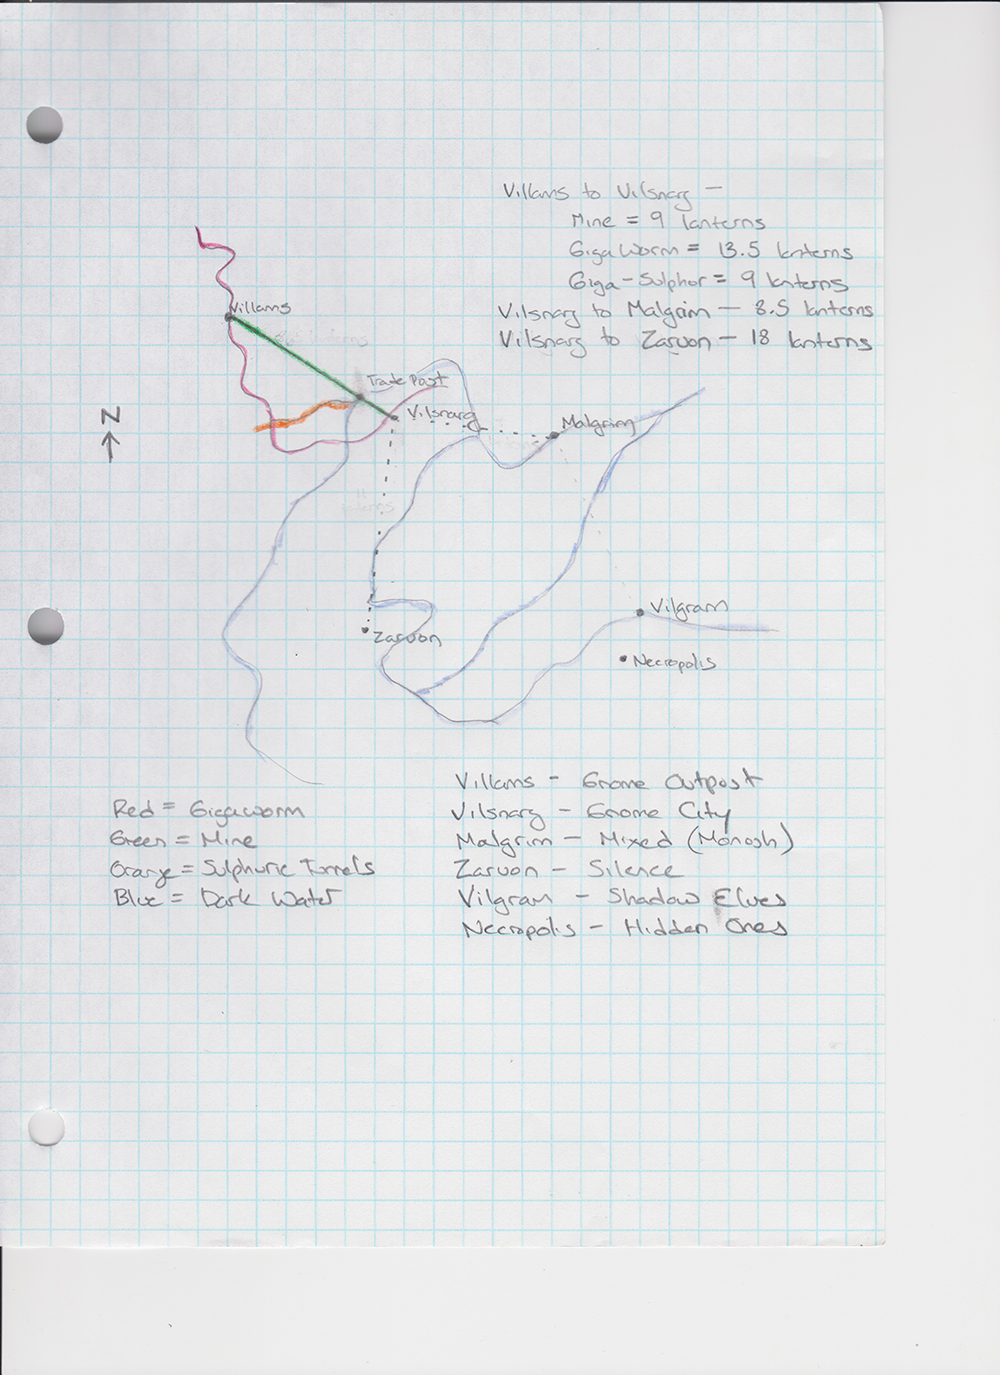 Villams to Vilsnarg —
Mine = 9 lanterns
GigaWorm = 13.5 lanterns
Giga-Sulphor = 9 lanterns
Vilsnarg to Malgrim — 8.5 lanterns
Vilsnarg to Zarvon — 18 lanterns
Villams
Trade Post
Vilsnarg
Malgrim
N
Vilgram
Zarvon
Necropolis
Red = Gigaworm
Green = Mine
Orange = Sulphuric Tunnels
Blue = Dark Water
Villams - Gnome Outpost
Vilsnarg - Gnome City
Malgrim - Mixed (Monosh)
Zarvon - Silence
Vilgram - Shadow Elves
Necropolis - Hidden Ones